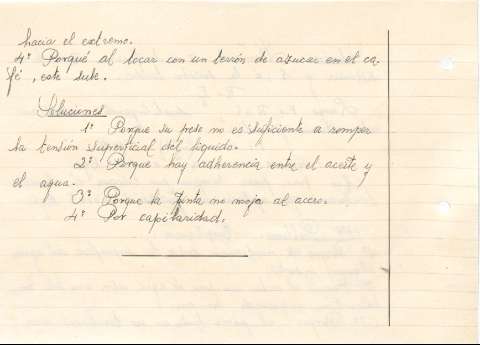 hacia el extremo.
4º Porqué al tocar con un terrón de azucar en el ca-
fé, este sube.
Soluciones
1º Porque su peso no es suficiente a romper
la tensión superficial del liquido.
2º Porque hay adherencia entre el aceite y
el agua.
3º Porque la tinta no moja al acero.
4º Por capilaridad.